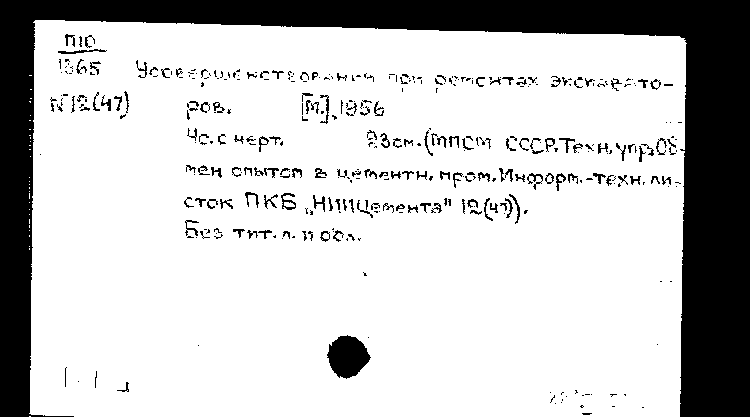 П10
1365 Усовершенствования при ремонтах экскавато-
N 12(47) ров. [М.], 1956
4с. с черт. 23см. (МПСМ СССР. Техн. упр. Об-
мен опытом в цементн. пром. Информ.-техн. ли-
сток ПКБ „НИИЦемента" 12(47)).
Без тит. л. и обл.